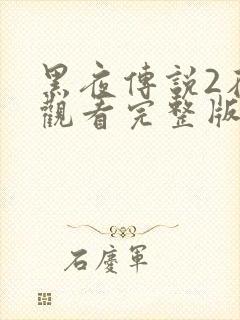 黑夜傳説2
觀看完整版
石慶軍